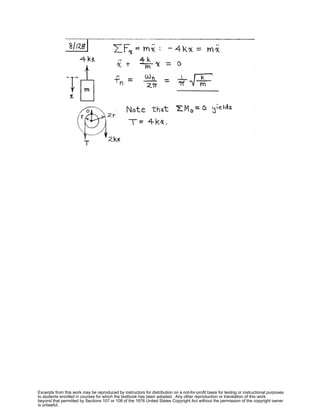 8/128
ΣFx = mẍ : - 4kx = mẍ
4kx
ẍ + 4k/m x = 0
fn = ωn/2π = 1/π √k/m
m
x
O
r
2r
Note that ΣMo = 0 yields
T = 4kx.
T
2kx
Excerpts from this work may be reproduced by instructors for distribution on a not-for-profit basis for testing or instructional purposes
to students enrolled in courses for which the textbook has been adopted. Any other reproduction or translation of this work
beyond that permitted by Sections 107 or 108 of the 1976 United States Copyright Act without the permission of the copyright owner
is unlawful.